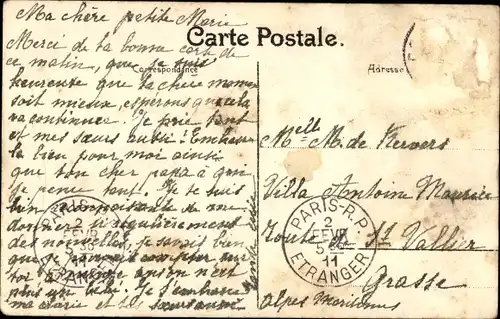 Ma chère petite Marie
Carte Postale.
Correspondance
Adresse
Merci de ta bonne carte de
ce matin, que je suis
heureuse que ta chère maman
soit mieux, espérons que cela
va continuer. Je prie tant
et mes sœurs aussi! Embrasse
la bien pour moi ainsi
que ton cher papa à qui
je pense tant. Je te suis
bien reconnaissante de me
donner si régulièrement
des nouvelles, je savais bien
que je pouvais compter sur
toi
n'est
plus un bébé. Je t'embrasse
ma chérie et tes sœurs aussi
Melle M. de
Villa Antoine Maurice
Route de St Vallier
Grasse
Alpes Maritimes
PARIS-R.P.
2
FEVR
5
11
ETRANGER
PARIS
FEVR
11